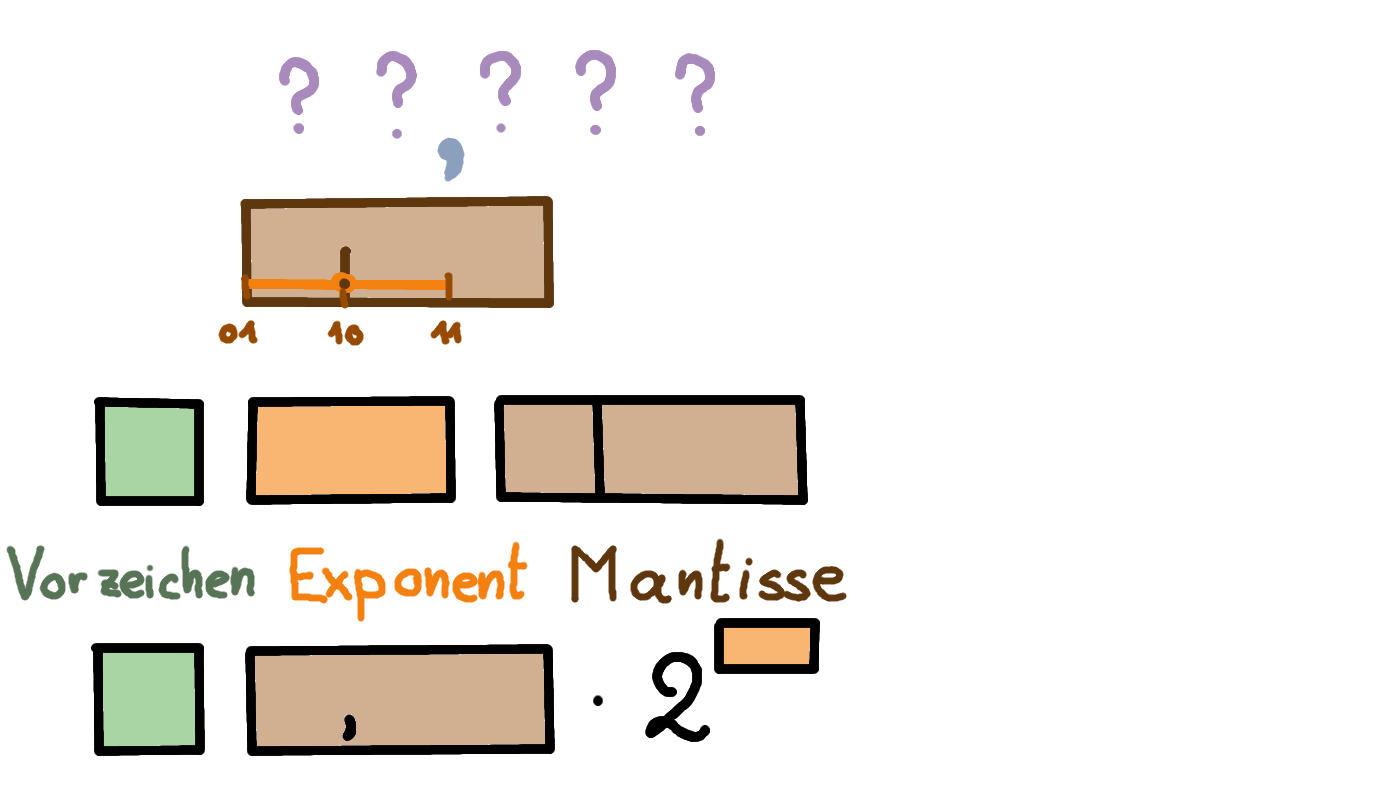 ? ? ? ? ?
,
01 10 11
Vorzeichen Exponent Mantisse
, · 2